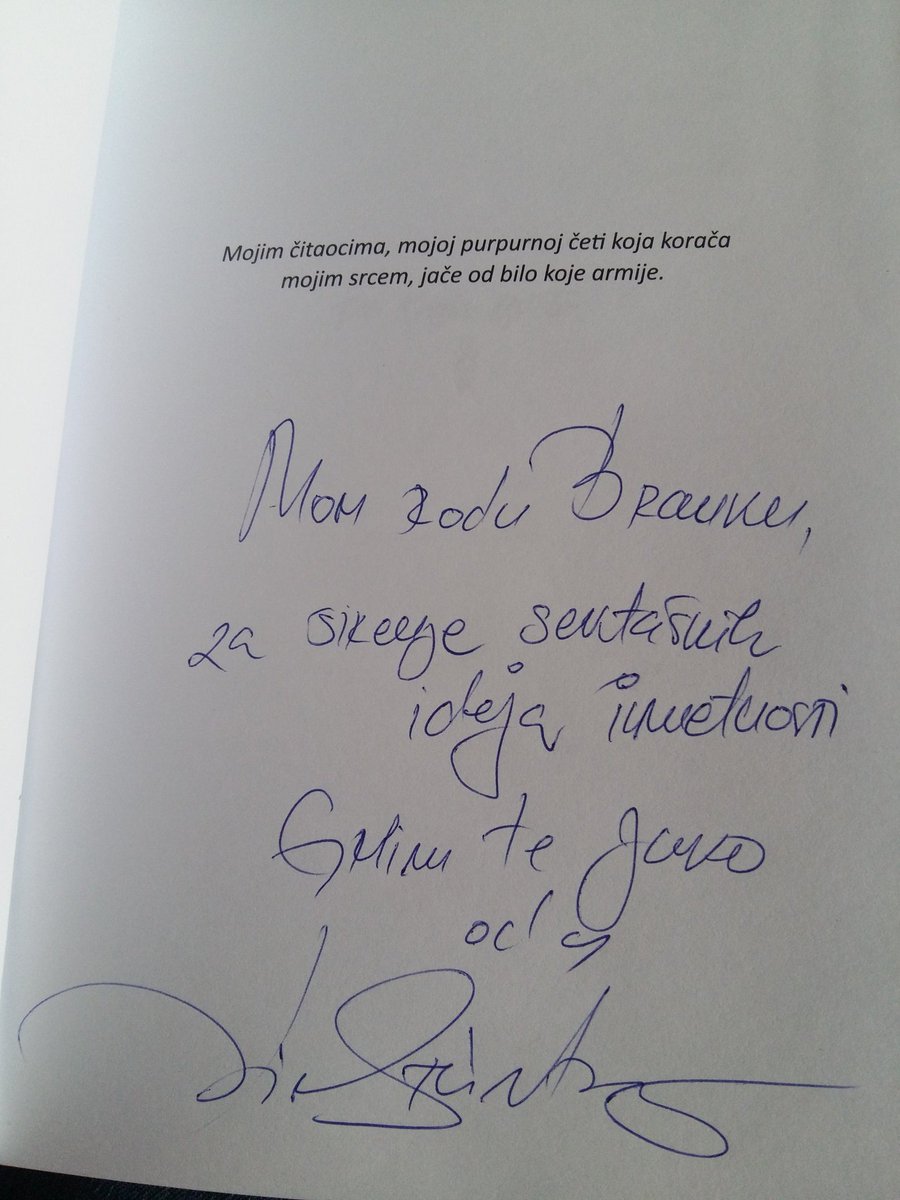 Mojim čitaocima, mojoj purpurnoj četi koja korača
mojim srcem, jače od bilo koje armije.
Mom rođi Branku,
za širenje
ideja umetnosti
Grlim te jako
od